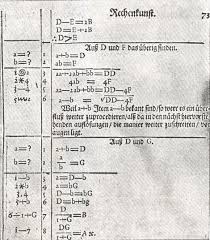 Rechenkunst. 73
D—E=2B
D=E+2B
∴D>E
Auß D und F das übrig finden.
a=? 1 a+b=D
b=? 2 ab=F
1 2 3 aa+2ab+bb=DD
2*4 4 4ab = 4F
3—4 5 aa—2ab+bb=DD—4F
6 a—b = √DD—4F
Weil a+b Item a—b bekant sind so wäre es ein über-
fluß weiter zuprocediren/als da in den nächst hievorste-
henden aufflösungen/ die manier weiter zuschreiten/ vor
augen ligt.
Auß D und G.
a=? 1 a+b=D
b=? 2 a/b=G
1—b 3 a=D—b
2*b 4 a=bG
3.4 5 D—b=bG
5+b 6 D=b+bG
6÷1+G 7 D/1+G=B
1—7 8 DG/1+G=A